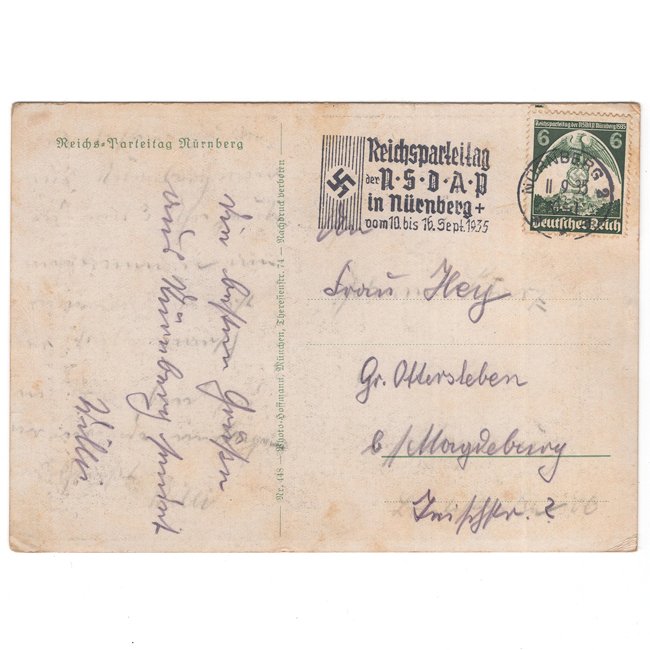 Reichs-Parteitag Nürnberg
Reichsparteitag
der N·S·D·A·P
in Nürnberg +
vom 10. bis 16. Sept. 1935
Reichsparteitag der NSDAP Nürnberg 1935
6 6
Deutsches Reich
NÜRNBERG 2
11.9.35
Nr. 448 — Photo-Hoffmann, München, Theresienstr. 74 — Nachdruck verboten
Grüßen
aus Nürnberg sendet
An
Frau Hey
Gr. Ottersleben
b/Magdeburg